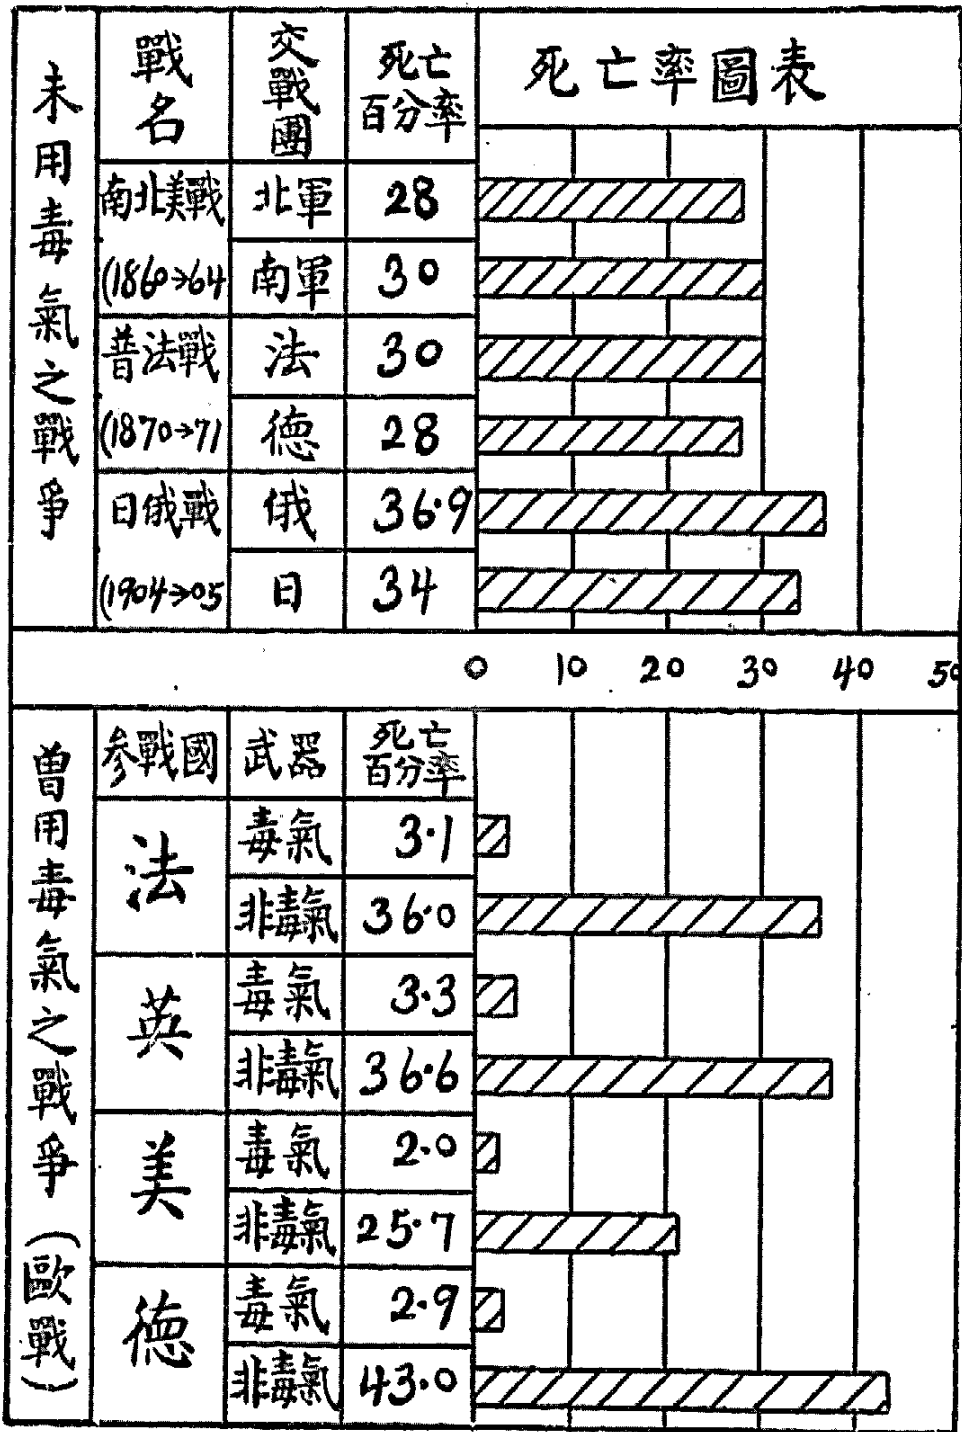 未用毒氣之戰爭
戰名
交戰團
死亡百分率
死亡率圖表
南北美戰
(1860→64
北軍
28
南軍
30
普法戰
(1870→71
法
30
德
28
日俄戰
(1904→05
俄
36.9
日
34
0 10 20 30 40 50
曾用毒氣之戰爭(歐戰)
参戰國
武器
死亡百分率
法
毒氣
3.1
非毒氣
36.0
英
毒氣
3.3
非毒氣
36.6
美
毒氣
2.0
非毒氣
25.7
德
毒氣
2.9
非毒氣
43.0